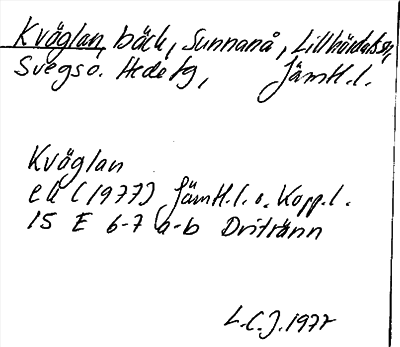 Kvåglan, bäck, Sunnanå, Lillhärdals sn,
Svegs o. Hede tg, Jämtl.l.
Kvåglan
ek (1977) Jämtl.l. o. Kopp.l.
15 E 6-7 a-b Dritränn
L.C.J. 1977